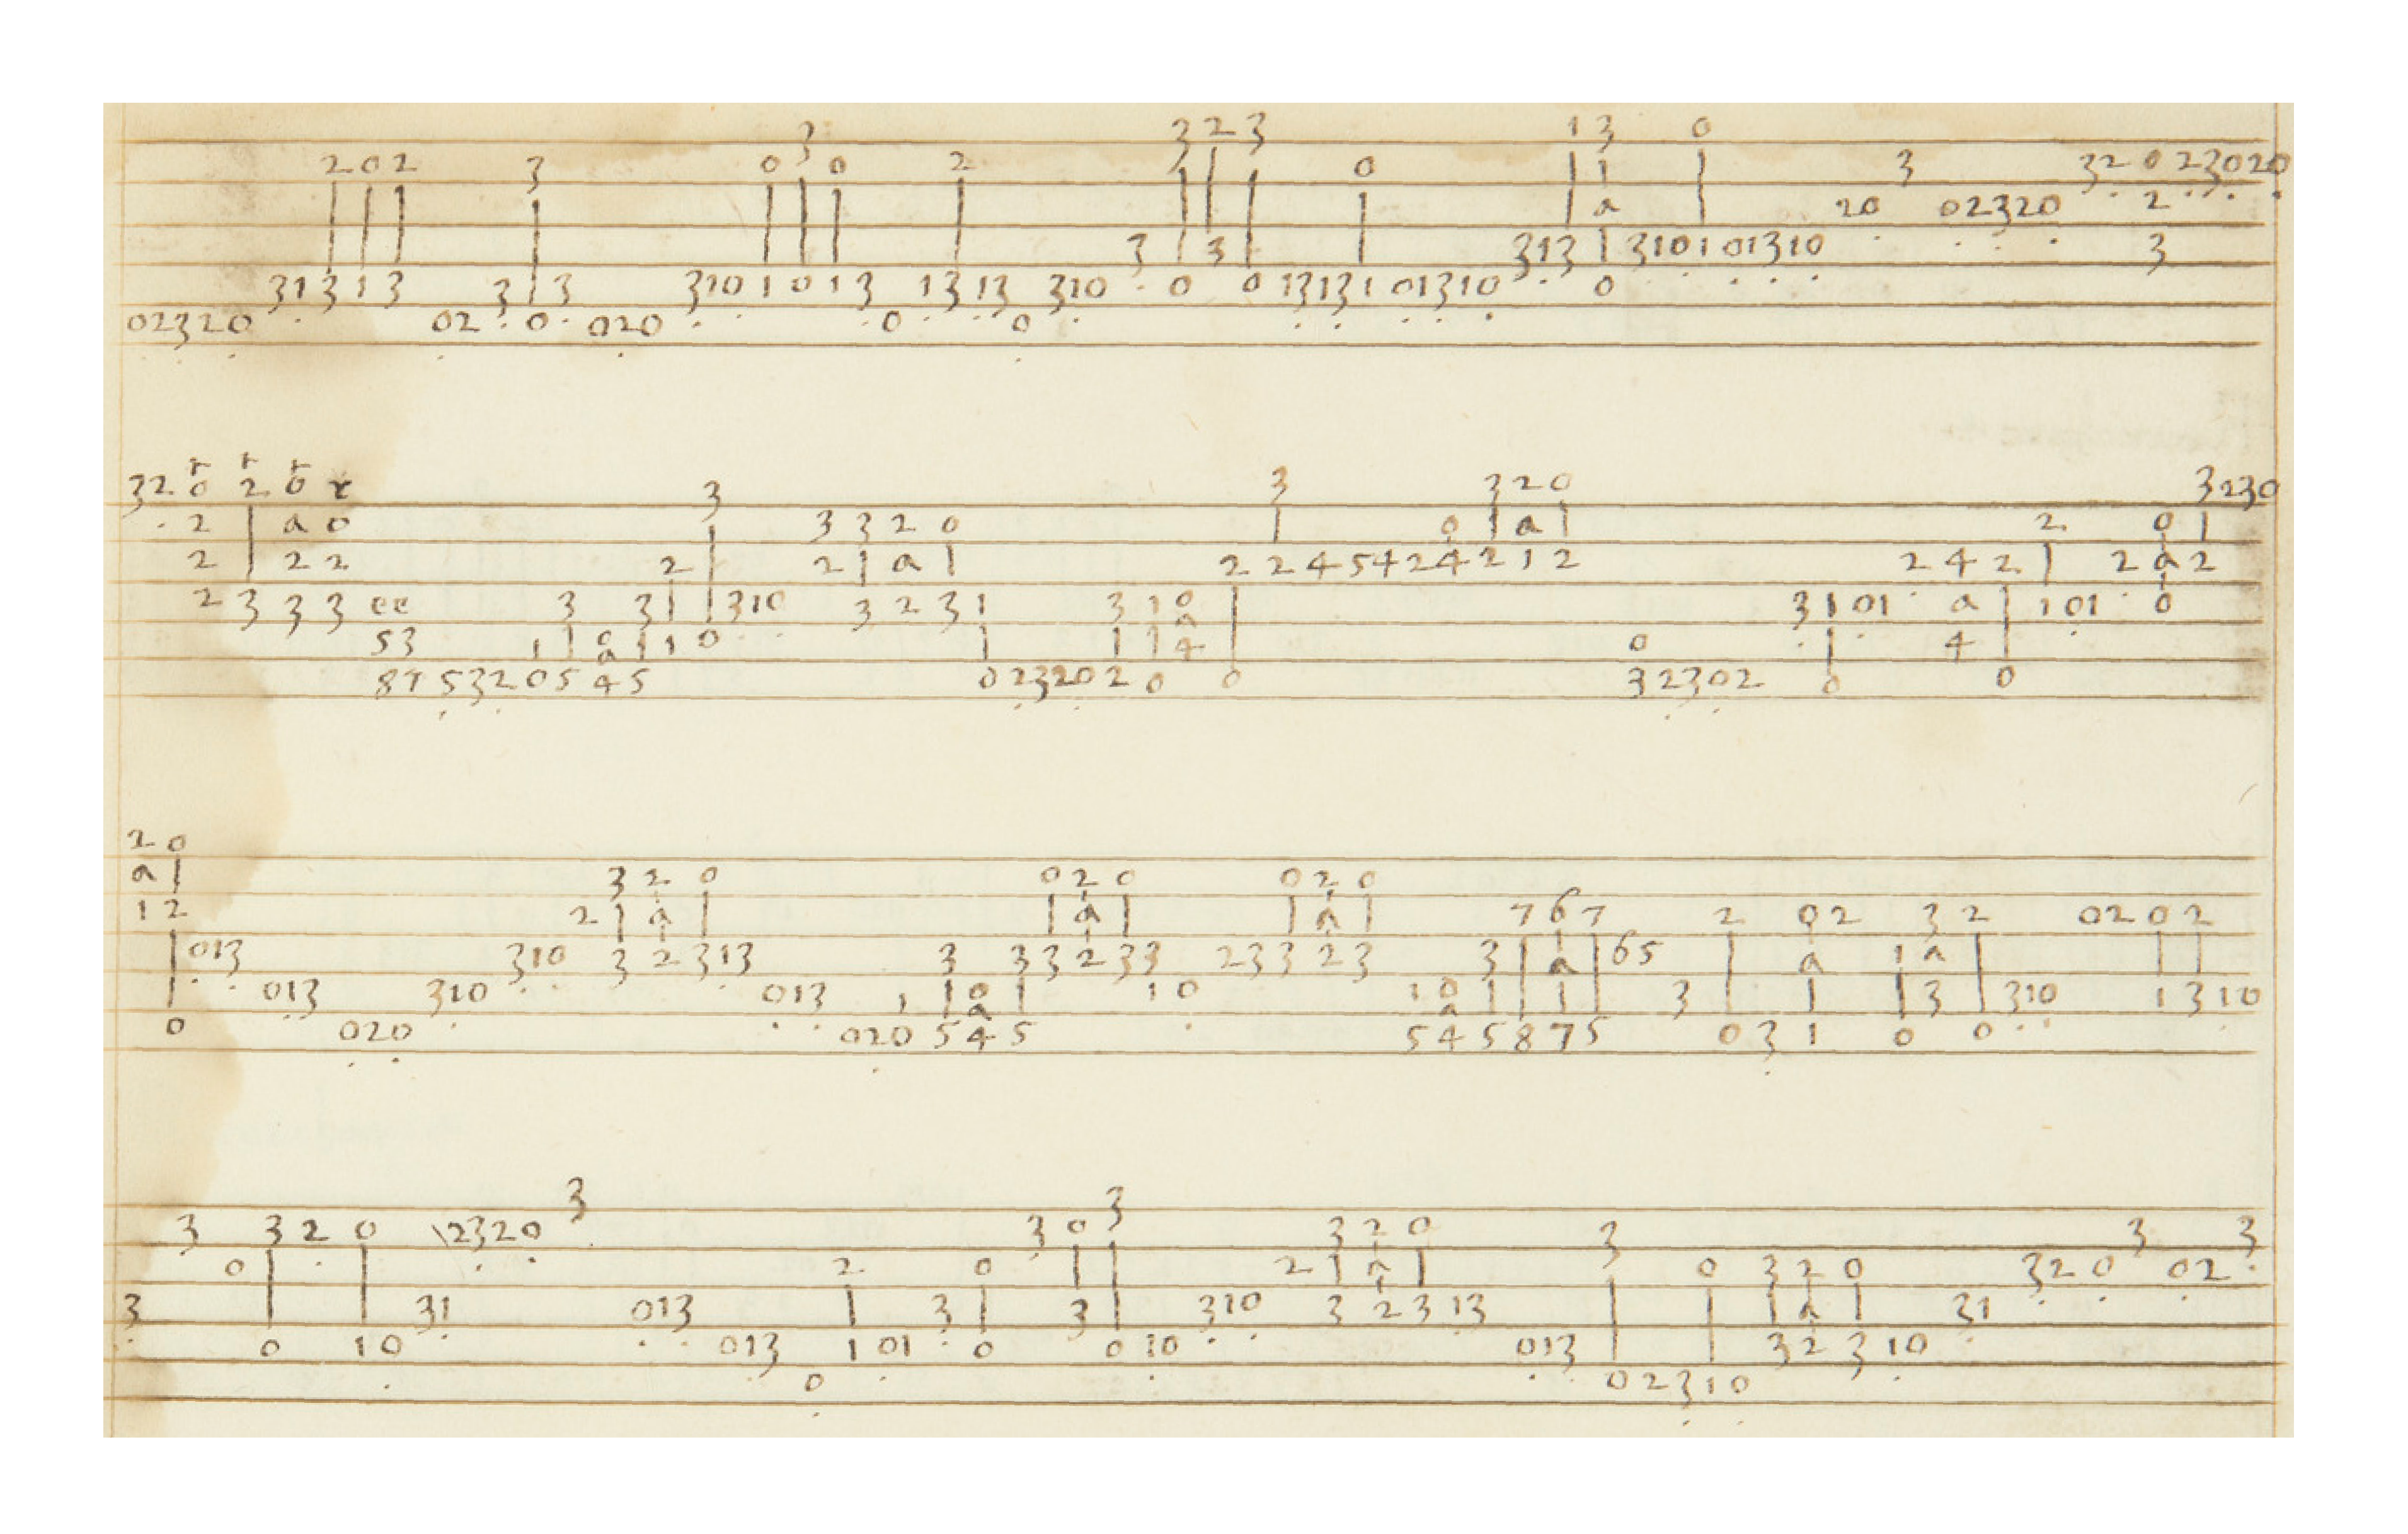 3 3 2 3 1 3 0
2 0 2 3 0 0 2 0 3 32 0 23020
a 20 02320 2
3 3 313 310 1 01310 3
31 3 1 3 3 3 310 1 0 1 3 13 13 310 0 0 1313 1 01310 0
02320 02 0 020 0 0
r r r
32 0 2 0 r 3 3 3 2 0 3 230
2 a 0 3 3 2 0 0 a 2 0
2 2 2 2 2 a 2 2 4 5 4 2 4 2 1 2 2 4 2 2 a 2
2 3 3 3 ee 3 3 310 3 2 3 1 3 1 0 3 1 01 a 1 01 0
53 1 0 a 1 1 0 a 4 0 4
87 532 0 5 4 5 0 2320 2 0 0 3 2302 0 0
2 0
a 3 2 0 0 2 0 0 2 0
1 2 2 a a a 7 6 7 2 0 2 3 2 02 0 2
013 310 3 2 3 13 3 3 3 2 3 3 2 3 3 2 3 3 a 6 5 a 1 a
013 310 013 1 0 a 1 0 1 0 a 3 3 310 1 3 1 0
0 020 020 5 4 5 5 4 5 8 7 5 0 3 1 0 0
3 3
3 3 2 0 2320 3 0 3 2 0 3 3 3
0 2 0 2 a 0 3 2 0 3 2 0 02
3 31 013 3 3 310 3 2 3 13 a 31
0 1 0 013 1 01 0 0 10 013 3 2 3 10
0 0 2 3 1 0